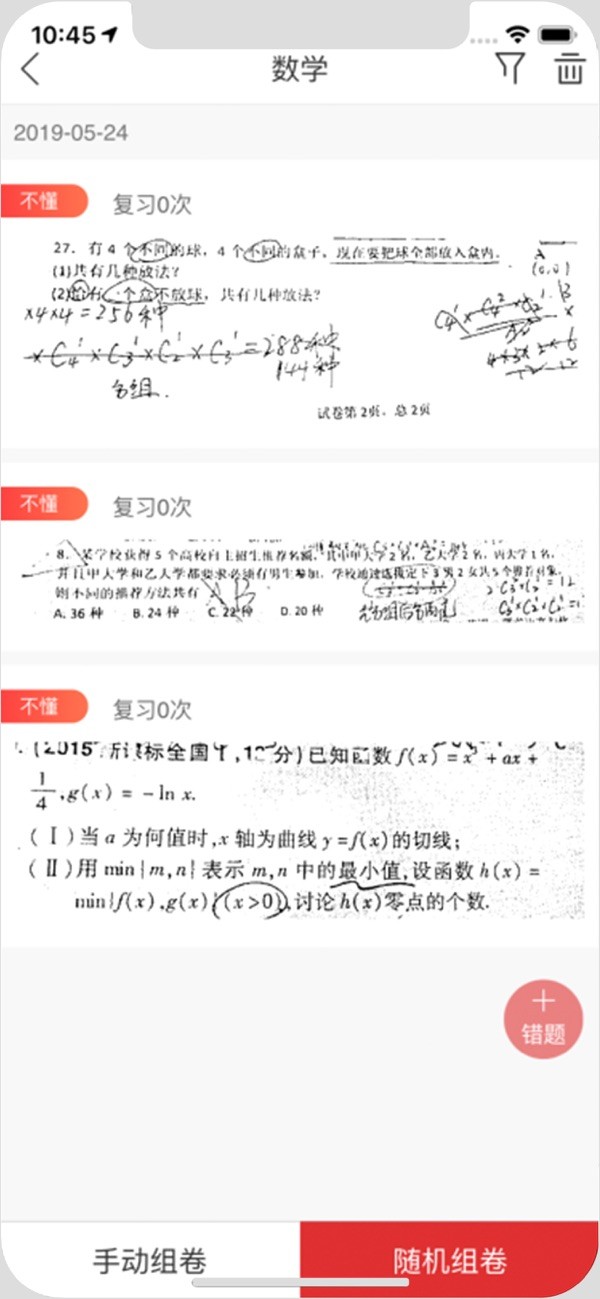 10:45
数学
2019-05-24
不懂
复习0次
27. 有 4 个不同的球，4 个不同的盒子，现在要把球全部放入盒内．
(1)共有几种放法？
(2)恰有一个盒不放球，共有几种放法？
×4×4＝256种
A
(0,0)
＝288种
144种
分组．
试卷第 2页，总 2页
不懂
复习0次
8. 某学校获得 5 个高校自主招生推荐名额，其中甲大学 2 名，乙大学 2 名，丙大学 1 名，
并且甲大学和乙大学都要求必须有男生参加，学校通过选拔定下 3 男 2 女共 5 个推荐对象，
则不同的推荐方法共有
A. 36 种 B. 24 种 C. 22 种 D. 20 种
先分组后分两道
不懂
复习0次
(2015·新课标全国Ⅰ,12分)已知函数 f(x)=x³+ax+
1/4,g(x) = -ln x.
(Ⅰ)当 a 为何值时,x 轴为曲线 y=f(x)的切线;
(Ⅱ)用 min{m,n}表示 m,n 中的最小值,设函数 h(x) =
min{f(x),g(x)}(x>0),讨论 h(x)零点的个数.
+
错题
手动组卷
随机组卷